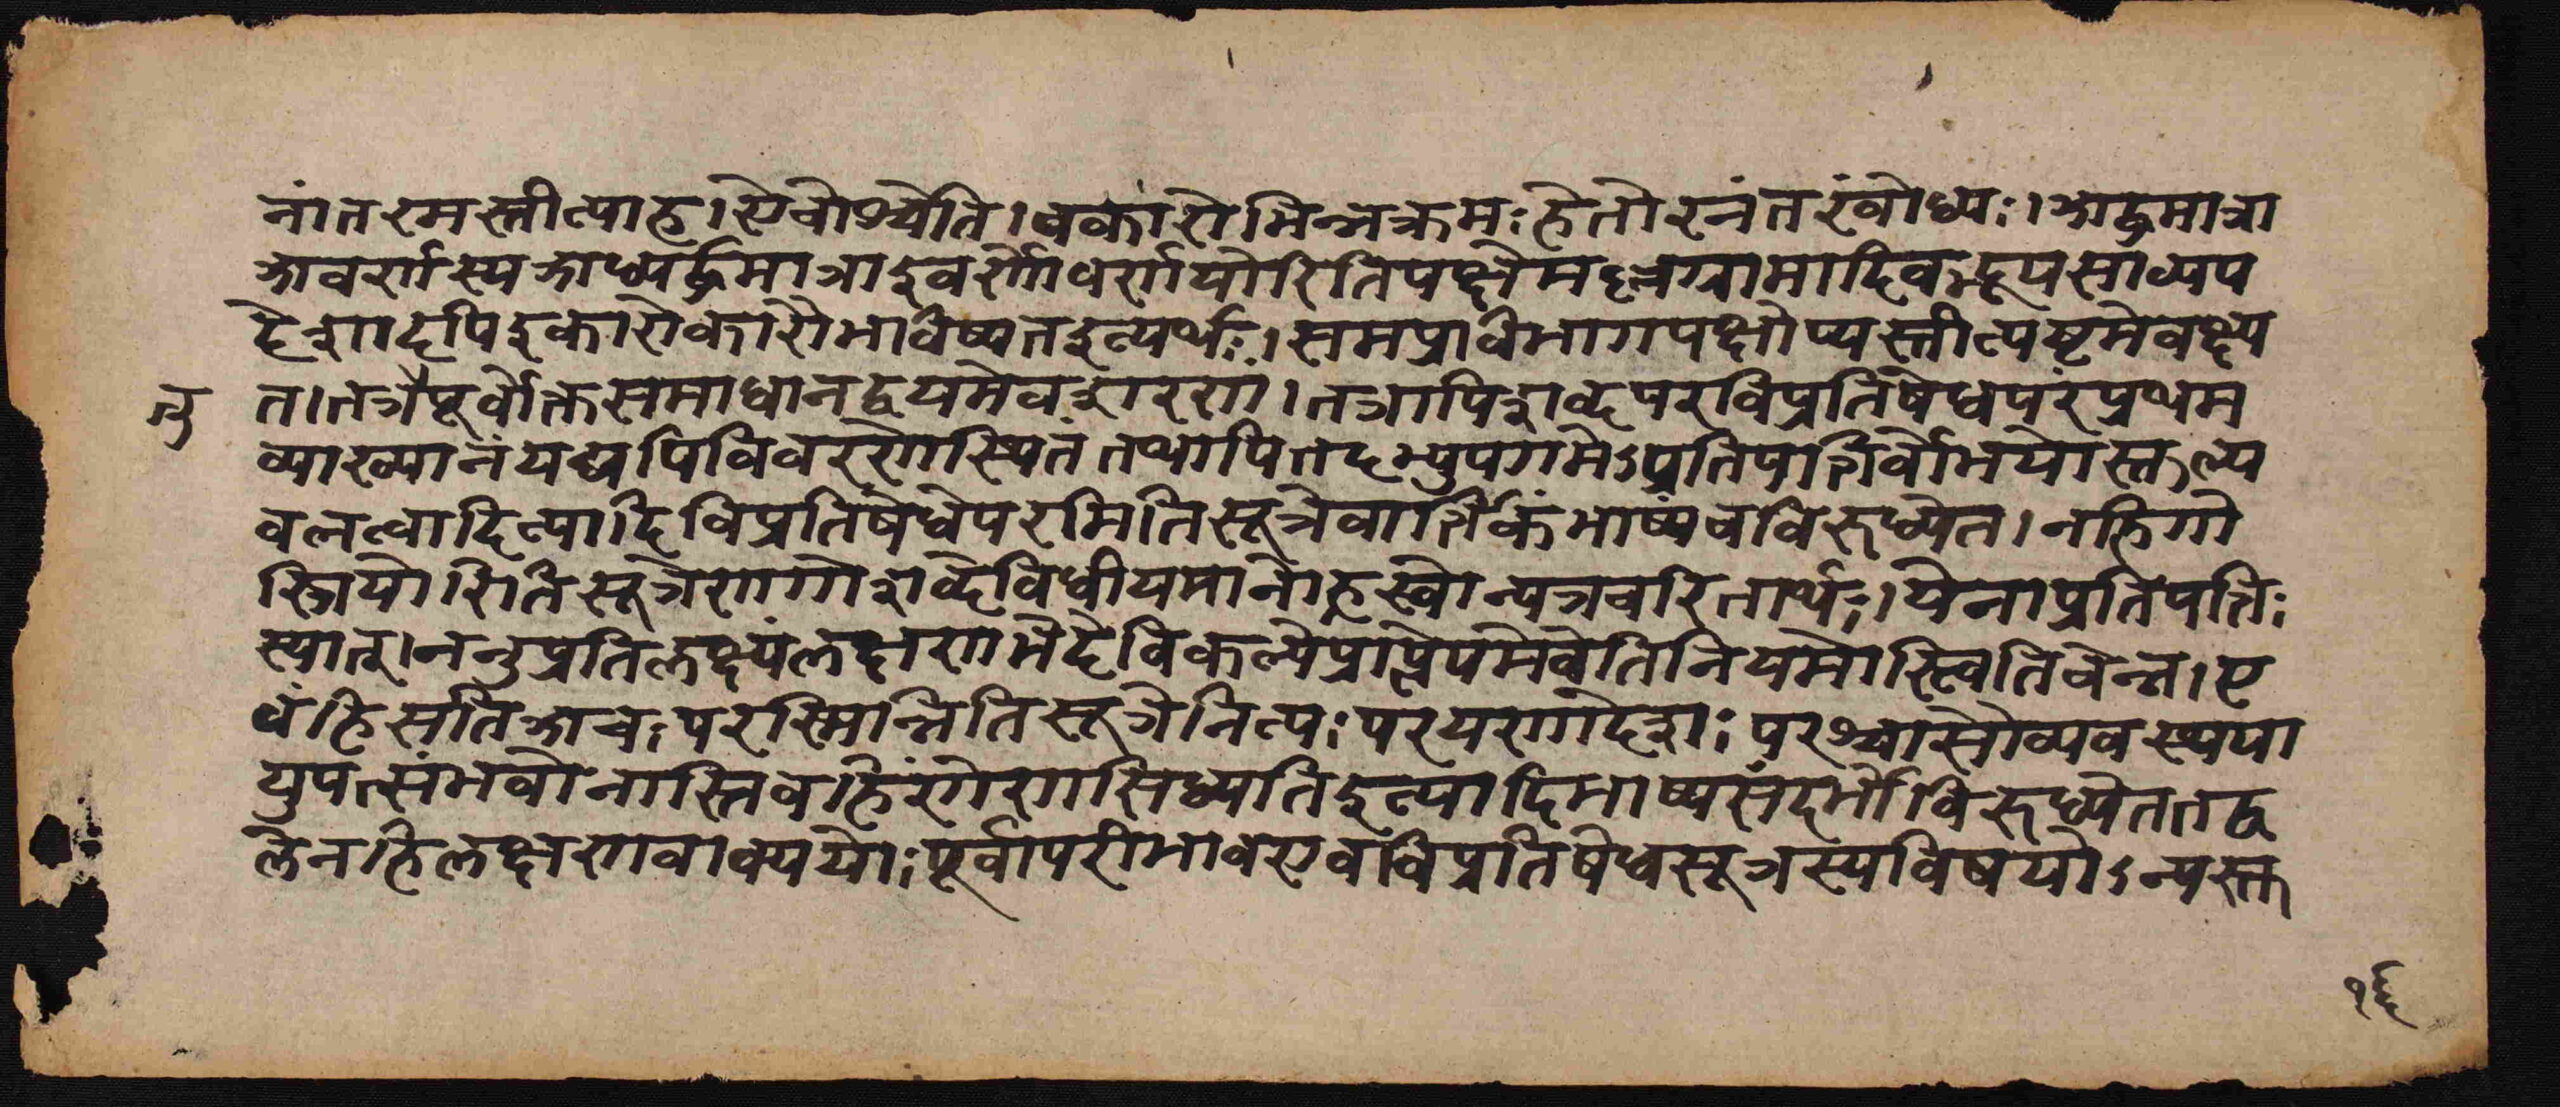 नांतरमस्तीत्याह। ऐचोश्चेति। चकारोभिन्नक्रमः हेतोरनंतरंबोध्यः। अर्द्धमात्रा
अवर्णस्य अध्यर्द्धमात्राइवर्णोवर्णयोरितिपक्षेमल्लग्रामादिवद्भूयसाव्यप
देशादपिइकारोकारौभविष्यतइत्यर्थः। समप्रविभागपक्षोप्यस्तीत्यष्टमेवक्ष्य
तु
त। तत्रैपूर्वोक्तसमाधानद्वयमेवशरणं। तत्रापिशब्दपरविप्रतिषेधपरंप्रथम
व्याख्यानंयद्यपिविवरणेस्थितं तथापितदभ्युपगमेऽप्रतिपत्तिर्वोभयोस्तुल्य
बलत्वादित्यादिविप्रतिषेधेपरमितिसूत्रेवार्त्तिकंभाष्यंचविरुध्येत। नहिगो
स्त्रियोरितिसूत्रेणगोशब्देविधीयमानोह्रस्वोन्यत्रचरितार्थः। येनाप्रतिपत्तिः
स्यात्। ननुप्रतिलक्ष्यंलक्षणभेदेविकल्पेप्राप्तेपरमेवेतिनियमोस्त्वितिचेन्न। ए
वंहिसतिअचःपरस्मिन्नितिसूत्रेनित्यःपरयणादेशःपरश्चासौव्यवस्थया
युपत्संभवोनास्तिबहिरंगेणसिध्यतिइत्यादिभाष्यसंदर्भोविरुध्येततद्ब
लेनहिलक्षणवाक्ययोःपूर्वापरीभावएवविप्रतिषेधसूत्रस्यविषयोऽन्यस्तु
१६